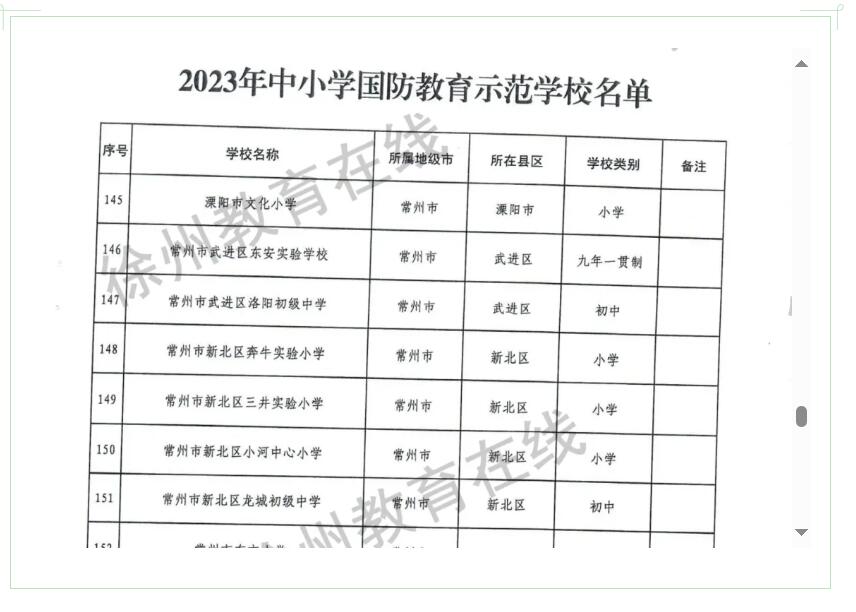 2023年中小学国防教育示范学校名单
序号 学校名称 所属地级市 所在县区 学校类别 备注
145 溧阳市文化小学 常州市 溧阳市 小学
146 常州市武进区东安实验学校 常州市 武进区 九年一贯制
147 常州市武进区洛阳初级中学 常州市 武进区 初中
148 常州市新北区奔牛实验小学 常州市 新北区 小学
149 常州市新北区三井实验小学 常州市 新北区 小学
150 常州市新北区小河中心小学 常州市 新北区 小学
151 常州市新北区龙城初级中学 常州市 新北区 初中
徐州教育在线
州教育在线